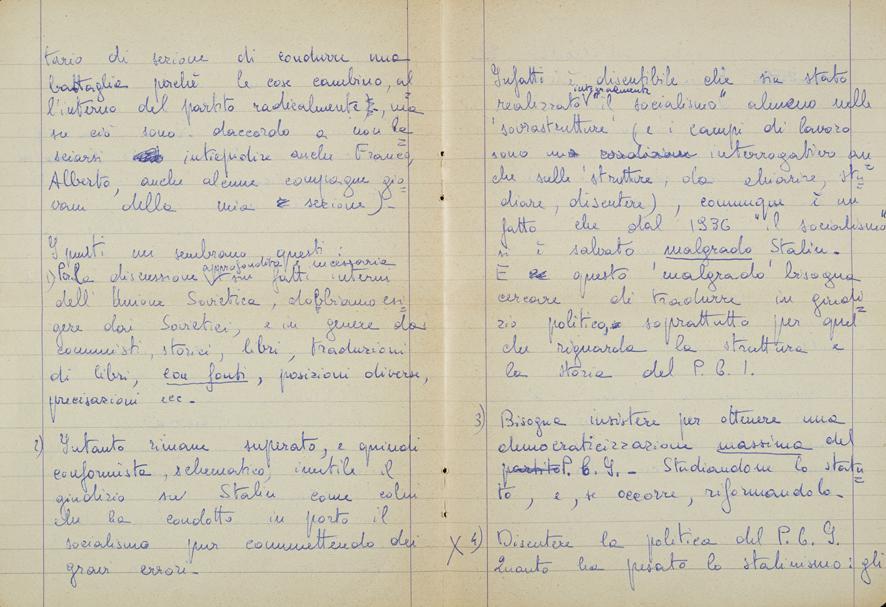 tario di sezione di condurre una
battaglia perchè le cose cambino, al
l'interno del partito radicalmente, ma
su ciò sono daccordo a non la
sciarsi intiepidire anche Franco,
Alberto, anche alcune compagne gio
vani della mia sezione).-
I punti mi sembrano questi:
1) Per la discussione approfondita è necessaria sui fatti interni
dell'Unione Sovietica, dobbiamo esi
gere dai Sovietici, e in genere dai
comunisti, storici, libri, traduzioni
di libri, con fonti, posizioni diverse,
precisazioni ecc-
2) Intanto rimane superato, e quindi
conformista, schematico, inutile il
giudizio su Stalin come colui
che ha condotto in porto il
socialismo pur commettendo dei
gravi errori.-
Infatti è discutibile che sia stato
realizzato integralmente "il socialismo" almeno nelle
'sovrastrutture' (e i campi di lavoro
sono interrogativo an
che sulle 'strutture', da chiarire, stu
diare, discutere), comunque è un
fatto che dal 1936 "il socialismo"
si è salvato malgrado Stalin.-
E questo 'malgrado' bisogna
cercare di tradurre in giudi
zio politico, soprattutto per quel
che riguarda la struttura e
la storia del P.C.I.
3) Bisogna insistere per ottenere una
democraticizzazione massima del
partito P.C.I.- Studiandone lo statu
to, e, se occorre, riformandolo.-
X 4) Discutere la politica del P.C.I.
Quanto ha pesato lo stalinismo: gli